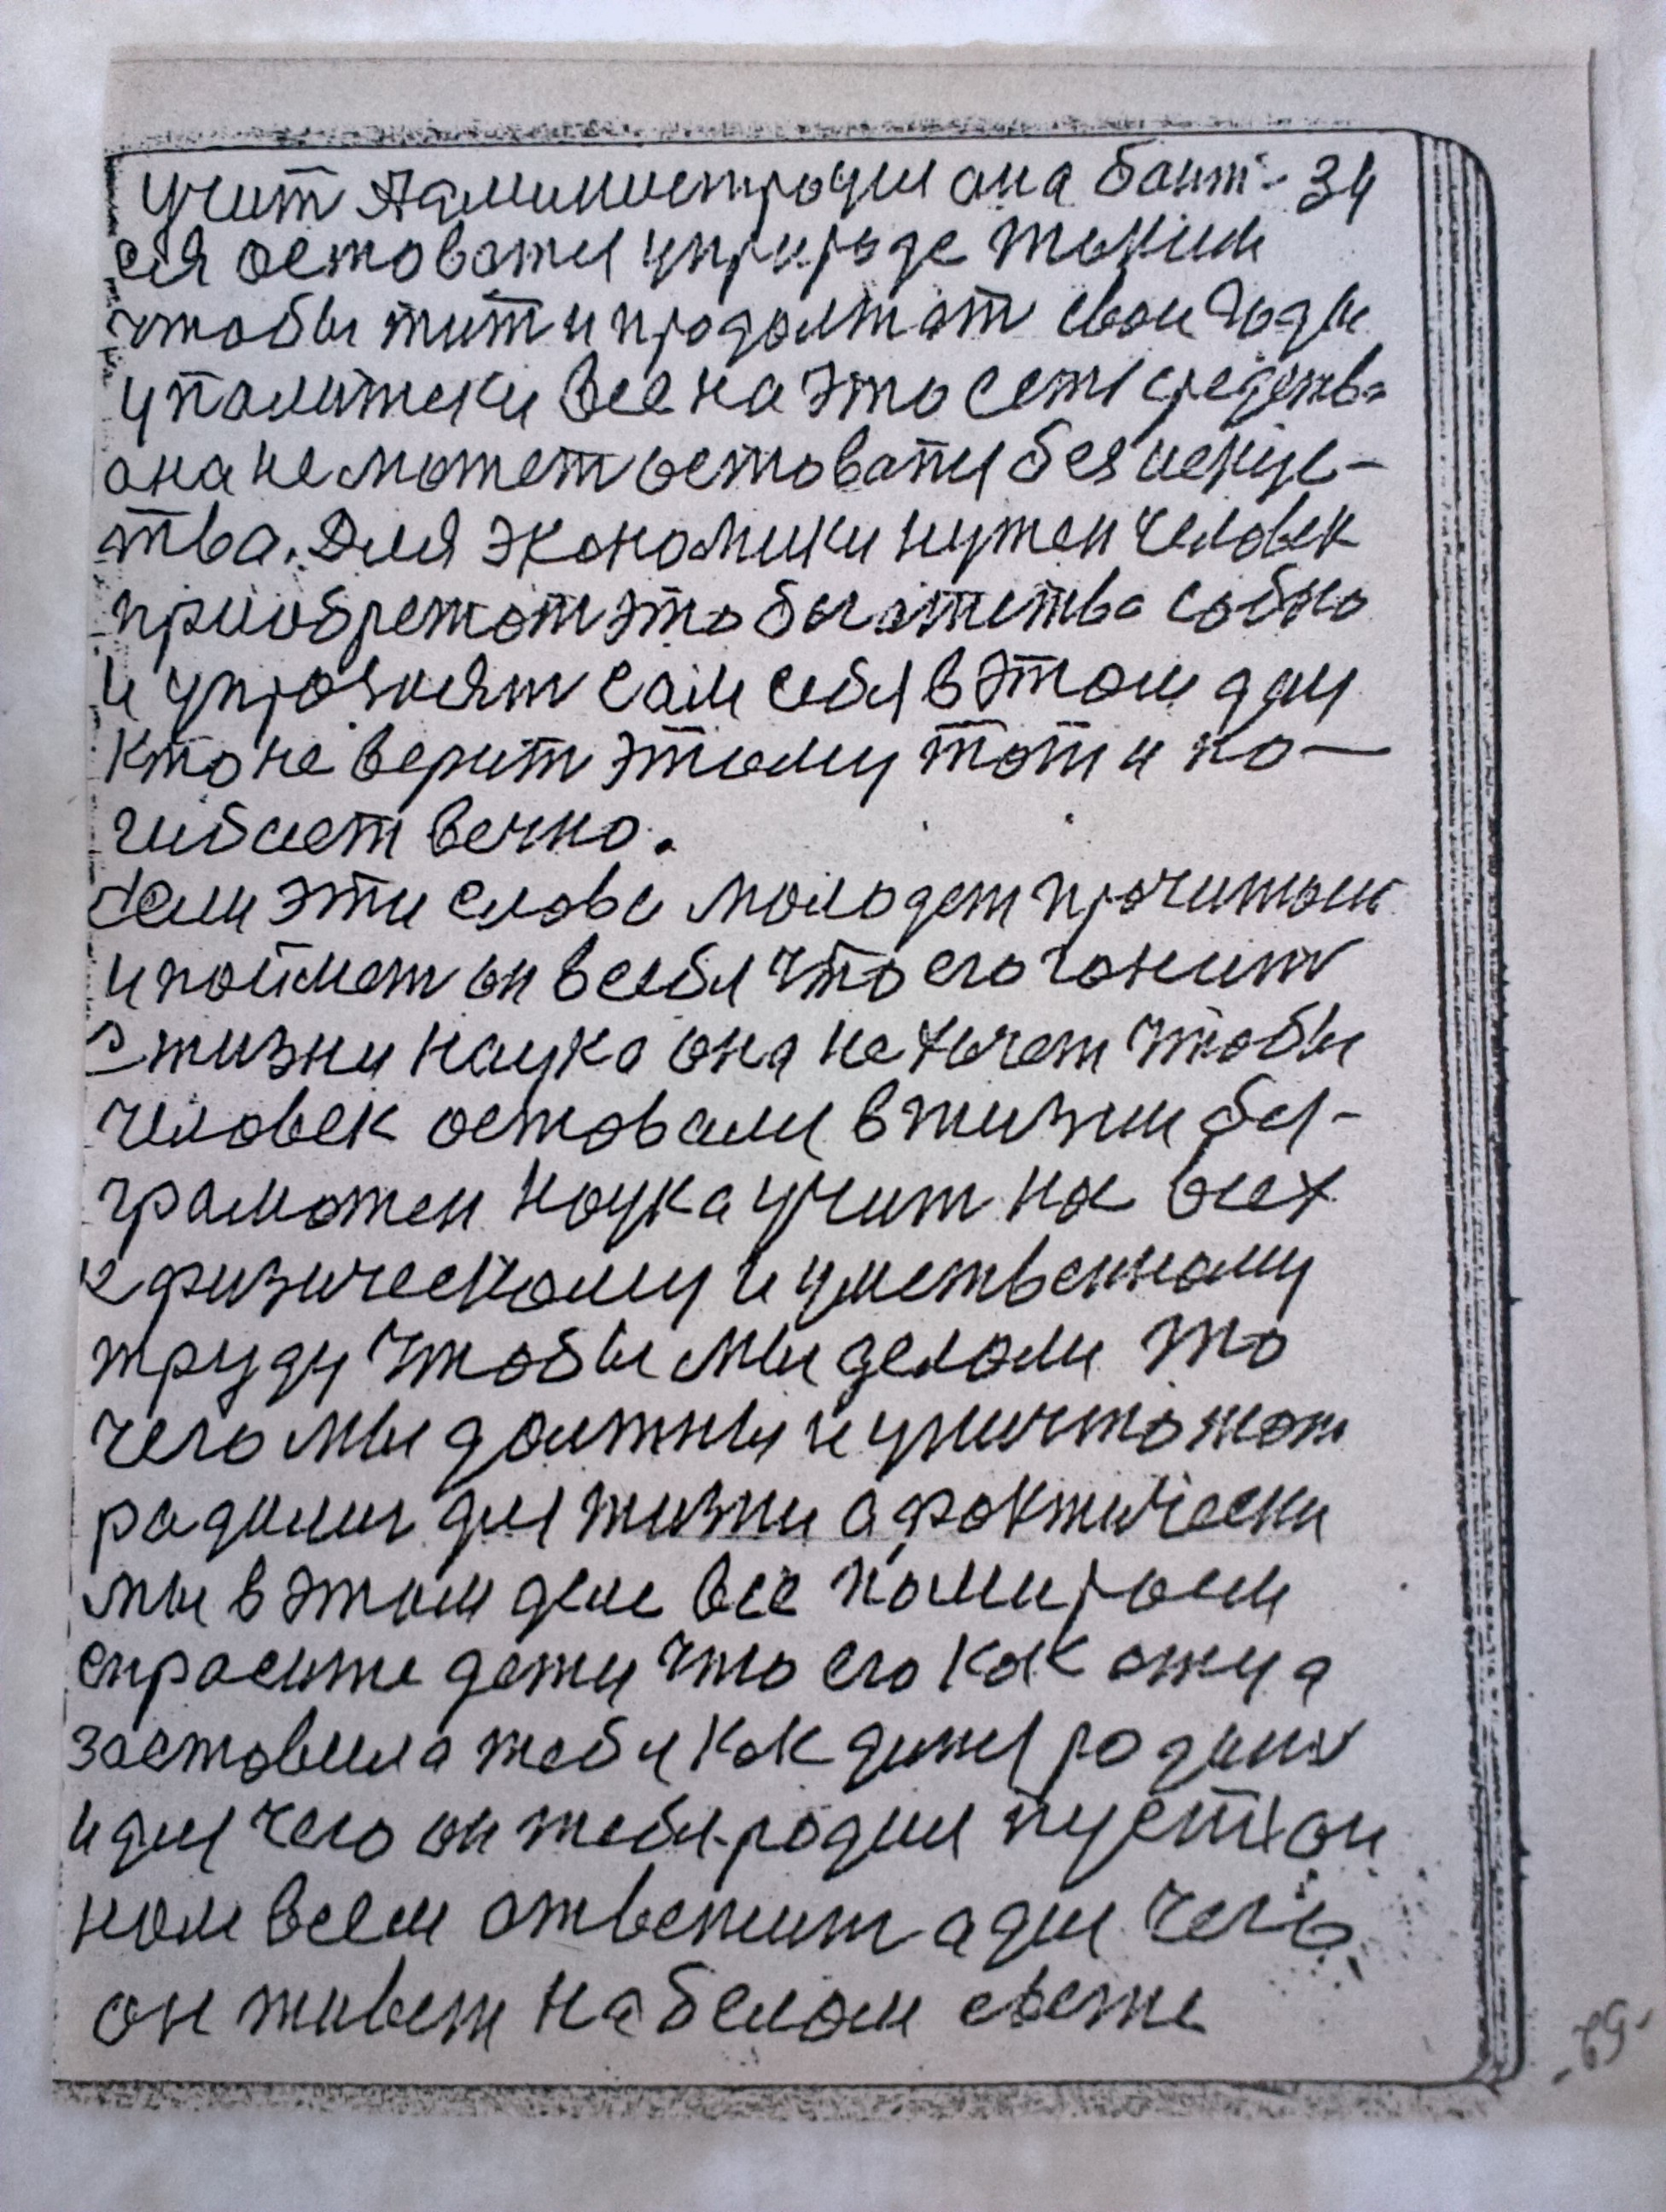 учит Администрацыи она боит- 34
ся остоватся уприроде таким
чтобы жит и продолжат свои годы
уполитеки все на это сеть средства
она не может остоватся без искус-
тва. Для экономики нужен человек
приобретат это богатства собою
и упровлят сам себя в этом деи
кто не верит этому тот и по-
гибает вечно.
Если эти слова молодеж прочитаит
и поймет он всебя что его гонит
с жизни наука она не хочет чтобы
человек оставался в жизни без-
грамотен наука учит нас всех
к физическому и умственному
труду чтобы мы делали то
чего мы должны и уничтожат
родилис для жизни а фактически
мы в этом деле все помираем
спросите дети что его как отца
заставила тебя как дитя родит
и для чего он тебя родил пусть он
нам всем ответит а для чего
он живет на белом свете
-62-